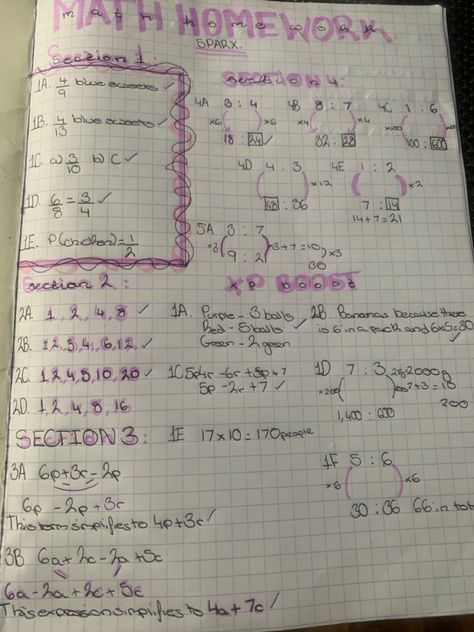 MATH HOMEWORK
SPARX.
Section 1:
1A. 4/9 blue sweets ✓
1B. 4/13 blue sweets ✓
1C. a) 3/10 b) C ✓
1D. 6/8 = 3/4 ✓
1E. P(chicken) = 1/2
Section 2:
2A. 1, 2, 4, 8 ✓
2B. 1,2,3,4,6,12 ✓
2C. 1,2,4,5,10,20 ✓
2D. 1, 2, 4, 8, 16
SECTION 3:
3A 6p+3r-2p
6p - 2p + 3r
This term simplifies to 4p+3r ✓
3B 6a+2c-2a+5c
6a-2a+2c+5c
This expression simplifies to 4a+7c ✓
Section 4:
4A 3 : 4
×6 ×6
18 : 24 ✓
4B 8 : 7
×4 ×4
32 : 28
4C 1 : 6
×100
100 : 600
4D 4 : 3
×12
48 : 36
4E 1 : 2
×2
7 : 14
14+7=21
5A 3 : 7
×3 3+7=10 ×3
9 : 21 30
XP BOOST
1A. Purple - 3 balls
Red - 5 balls ✓
Green - 2 green
2B Bananas because there
is 6 in a pack and 6×5=30
1C 5p4r -6r +3p+7
5p - 2r + 7 ✓
1D 7 : 3
×200 7+3=10
1,400 : 600 200
1E 17×10 = 170 people
1F 5 : 6
×6 ×6
30 : 36 66 in